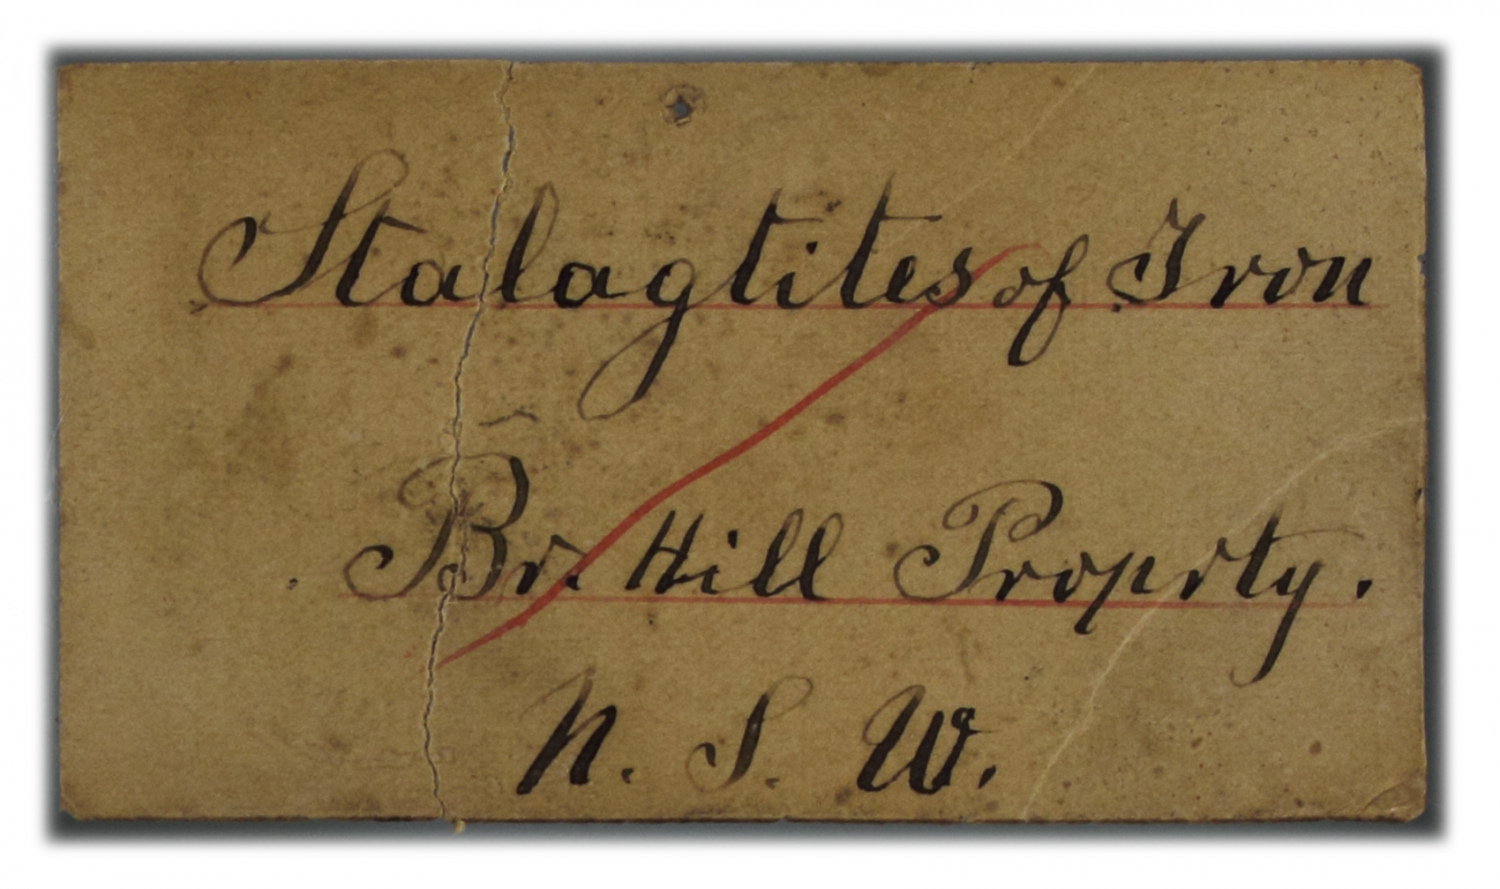 Stalagtites of Iron
Br. Hill Proprty.
N. S. W.